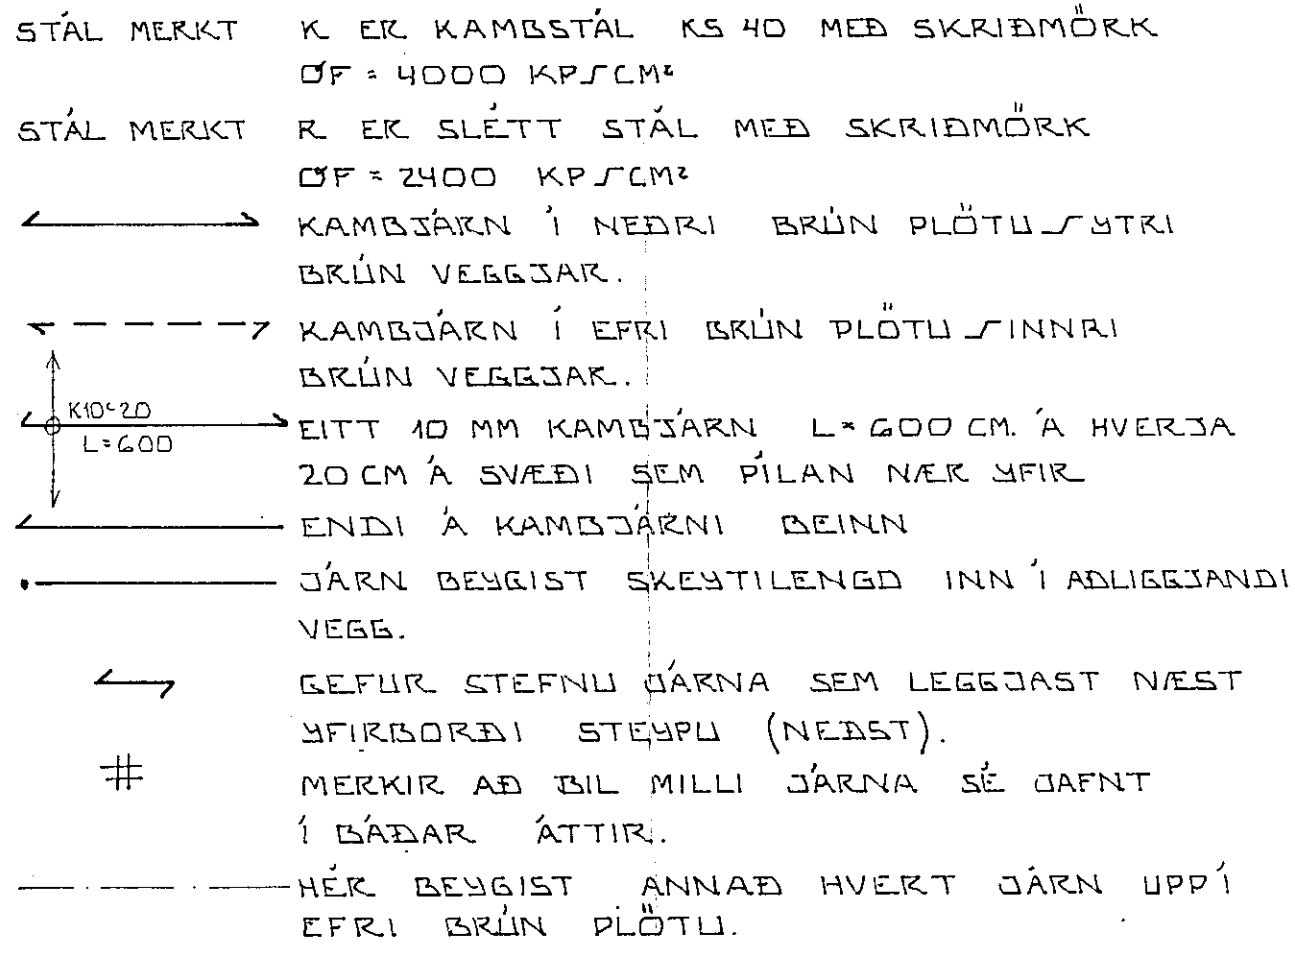 STÁL MERKT K ER KAMBSTÁL KS 40 MEÐ SKRIÐMÖRK
σF = 4000 KP/CM²
STÁL MERKT R ER SLÉTT STÁL MEÐ SKRIÐMÖRK
σF = 2400 KP/CM²
KAMBJÁRN Í NEÐRI BRÚN PLÖTU/YTRI
BRÚN VEGGJAR.
KAMBJÁRN Í EFRI BRÚN PLÖTU/INNRI
BRÚN VEGGJAR.
K10C20
L=600
EITT 10 MM KAMBJÁRN L=600 CM. Á HVERJA
20 CM Á SVÆÐI SEM PÍLAN NÆR YFIR
ENDI Á KAMBJÁRNI BEINN
JÁRN BEYGIST SKEYTILENGD INN Í AÐLIGGJANDI
VEGG.
GEFUR STEFNU JÁRNA SEM LEGGJAST NÆST
YFIRBORÐI STEYPU (NEÐST).
# MERKIR AÐ BIL MILLI JÁRNA SÉ JAFNT
Í BÁÐAR ÁTTIR.
HÉR BEYGIST ANNAÐ HVERT JÁRN UPP Í
EFRI BRÚN PLÖTU.